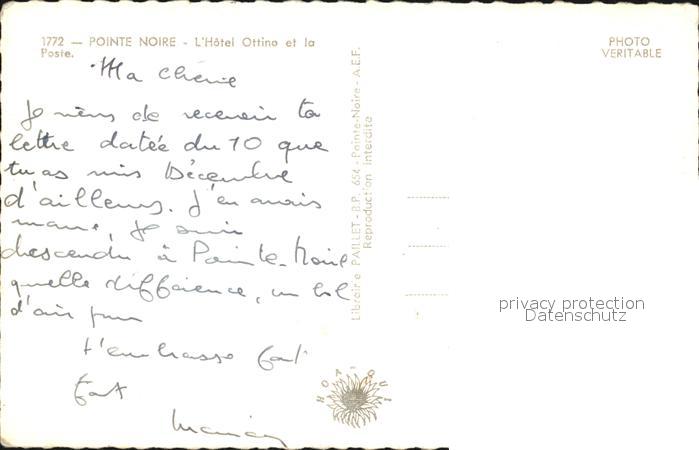 1772 — POINTE NOIRE - L'Hôtel Ottino et la
Poste.
PHOTO
VERITABLE
Ma Chérie
Je viens de recevoir ta
lettre datée du 10 que
tu as mis Décembre
d'ailleurs. J'en avais
marre, Je suis
descendu à Pointe-Noire
quelle différence, un bol
d'air pur
t'embrasse fort
fort
Librairie PAILLET - B.P. 654 - Pointe-Noire - A.E.F.
Reproduction Interdite
HOA-QUI
privacy protection
Datenschutz